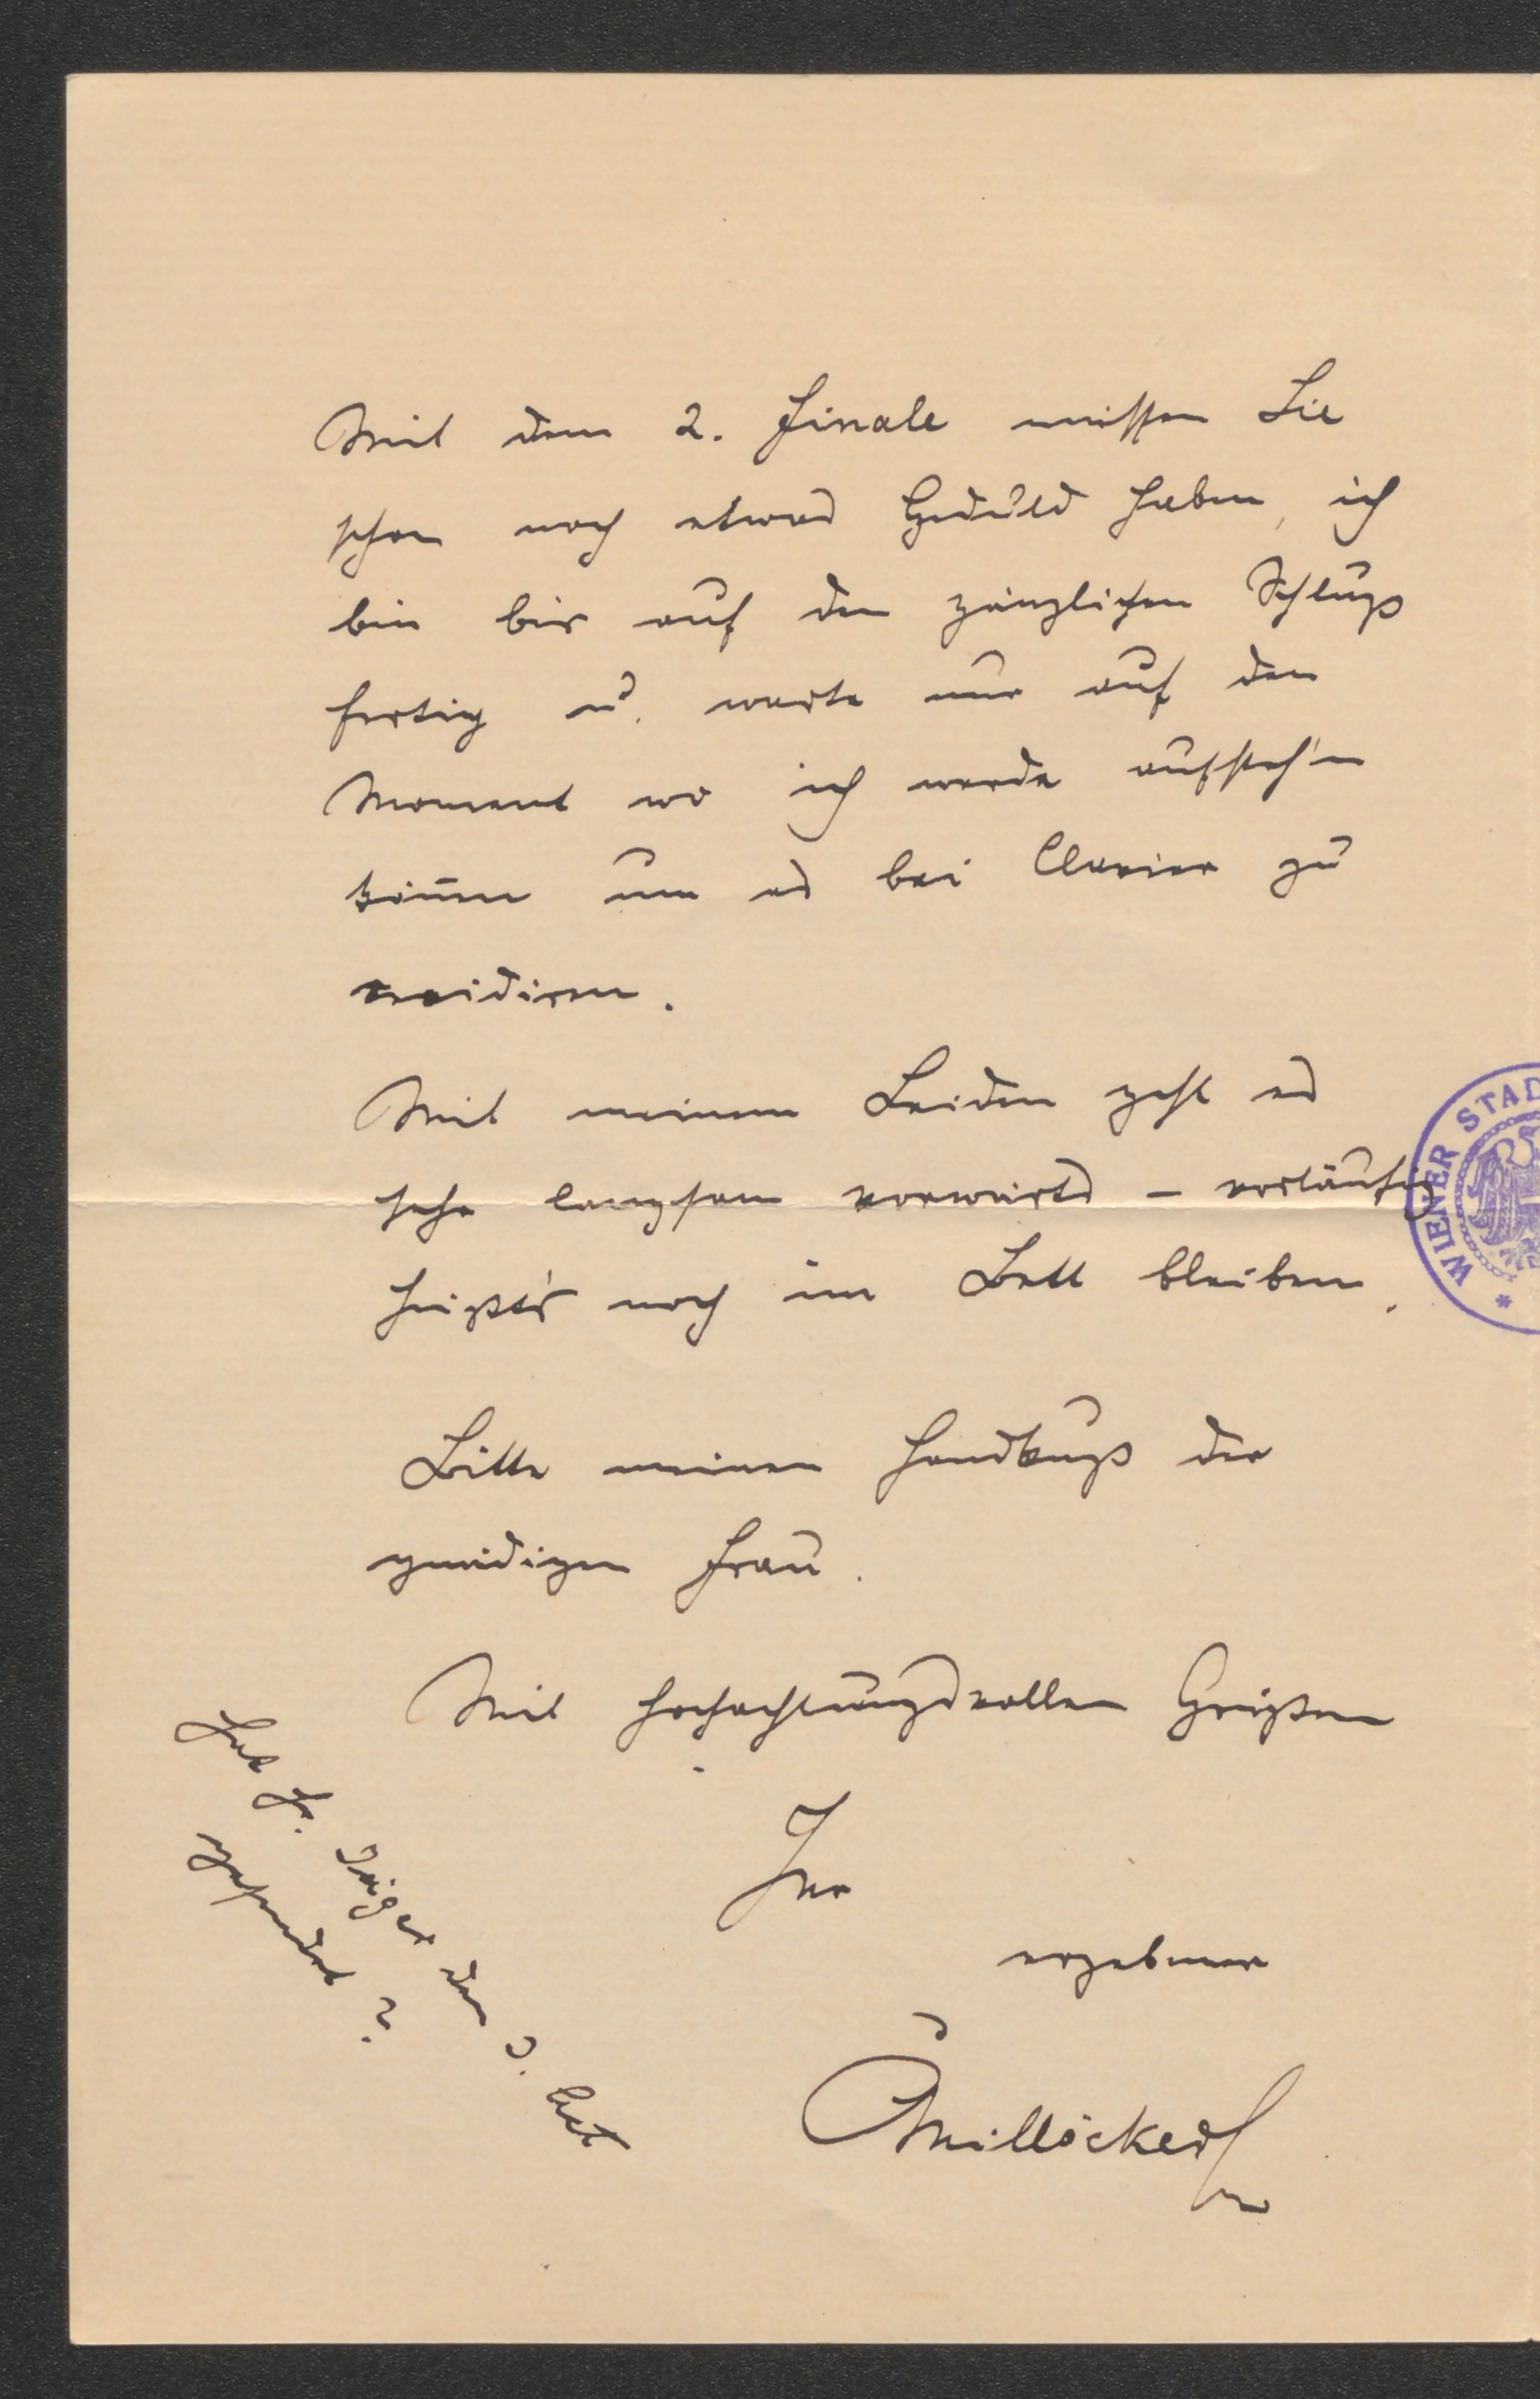 Mit dem 2. Finale müssen Sie
schon noch etwas Geduld haben, ich
bin bis auf den gänzlichen Schluß
fertig u. warte nur auf den
Moment wo ich werde aufsteh'n
können um es bei Clavier zu
revidiren.
Mit meinem Leiden geht es
sehr langsam vorwärts – vorläufig
heißt's noch im Bett bleiben.
Bitte meinen Handkuß der
gnädigen Frau.
Mit hochachtungsvollen Grüßen
Ihr
ergebener
CMillöcker
Hat H. den 3. Act
gesendet?
WIENER STAD